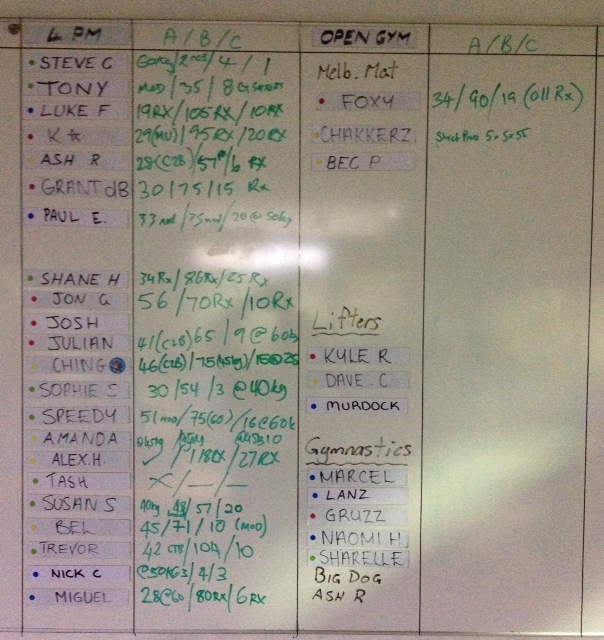 4 PM A/B/C
STEVE G 60kg/2nds/4/1
TONY MOD/35/8
LUKE F 19RX/105RX/10RX
K☆ 29(MU)/95RX/20RX
ASH R 28(C2B)/57/6 RX
GRANT dB 30/75/15 Rx
PAUL E. 33 mod/75mod/20@50kg
SHANE H 34Rx/86Rx/25Rx
JON G 56/70Rx/10Rx
JOSH
JULIAN 41(C2B) 65/9@60kg
CHING 46(C2B)/75(45kg)/15@25
SOPHIE S 30/54/3 @40kg
SPEEDY 51 mod/75(60)/16@60k
AMANDA
ALEX.H. ✓/118RX/27RX
TASH X/—/—
SUSAN S 40kg 48/57/20
BEL 45/71/10 (MOD)
TREVOR 42 CTB/104/10
NICK C @50KG3/4/3
MIGUEL 28@60/80RX/6RX
OPEN GYM A/B/C
Melb. Mat
FOXY 34/90/19 (all Rx)
CHAKKERZ 5.5.55
BEC P
Lifters
KYLE R
DAVE.C
MURDOCK
Gymnastics
MARCEL
LANZ
GRUZZ
NAOMI H
SHARELLE
BIG DOG
ASH R